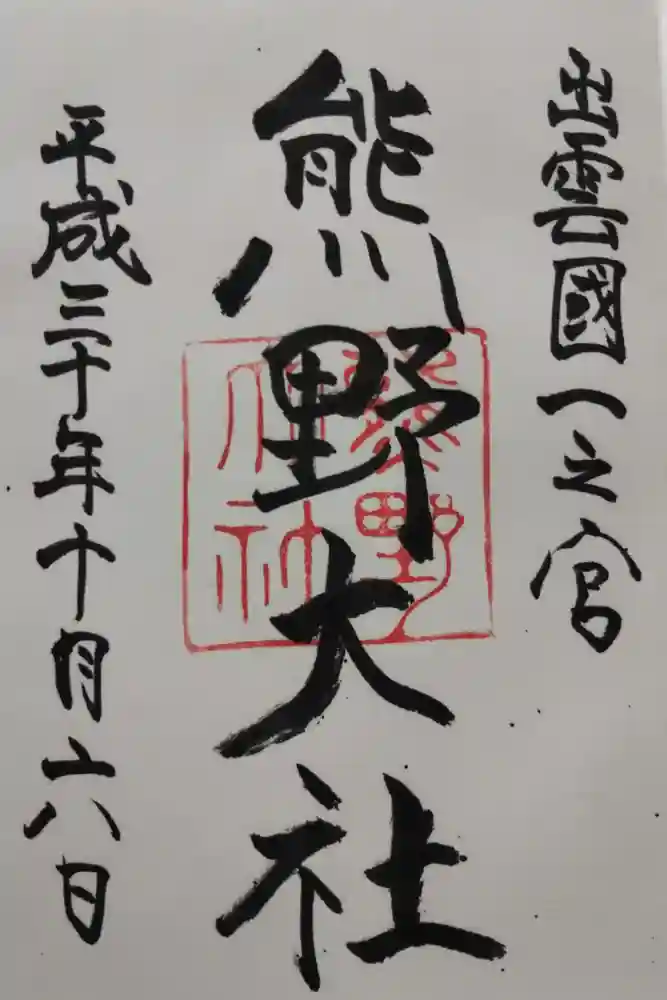 出雲國一之宮
熊野大社
熊野大社
平成三十年十月二八日